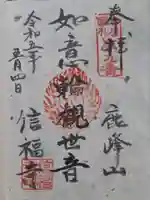 奉拝
鹿峰山
如意輪觀世音
令和五年
五月四日
信福寺